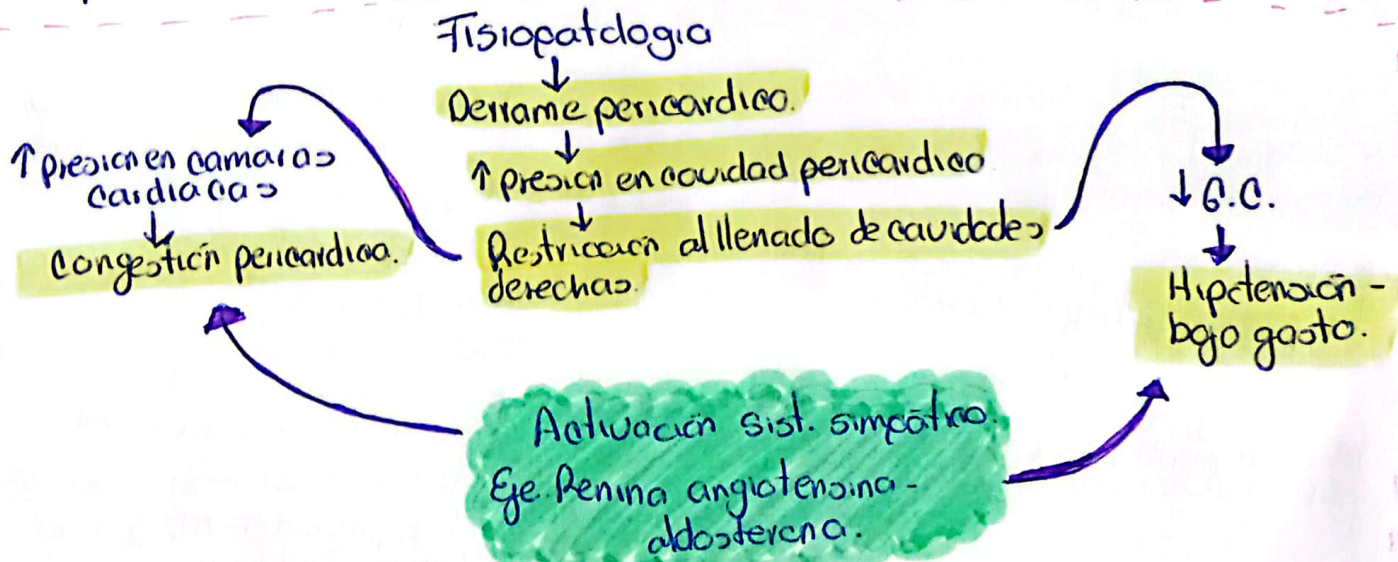 Fisiopatologia
↓
Derrame pericardico.
↓
↑ presion en cavidad pericardica
↓
Restricción al llenado de cavidades
derechas.
↑ presion en camaras
cardiacas
↓
Congestión pericardica.
↓ G.C.
↓
Hipotensión -
bajo gasto.
Activación sist. simpático.
Eje. Renina angiotensina -
aldosterona.